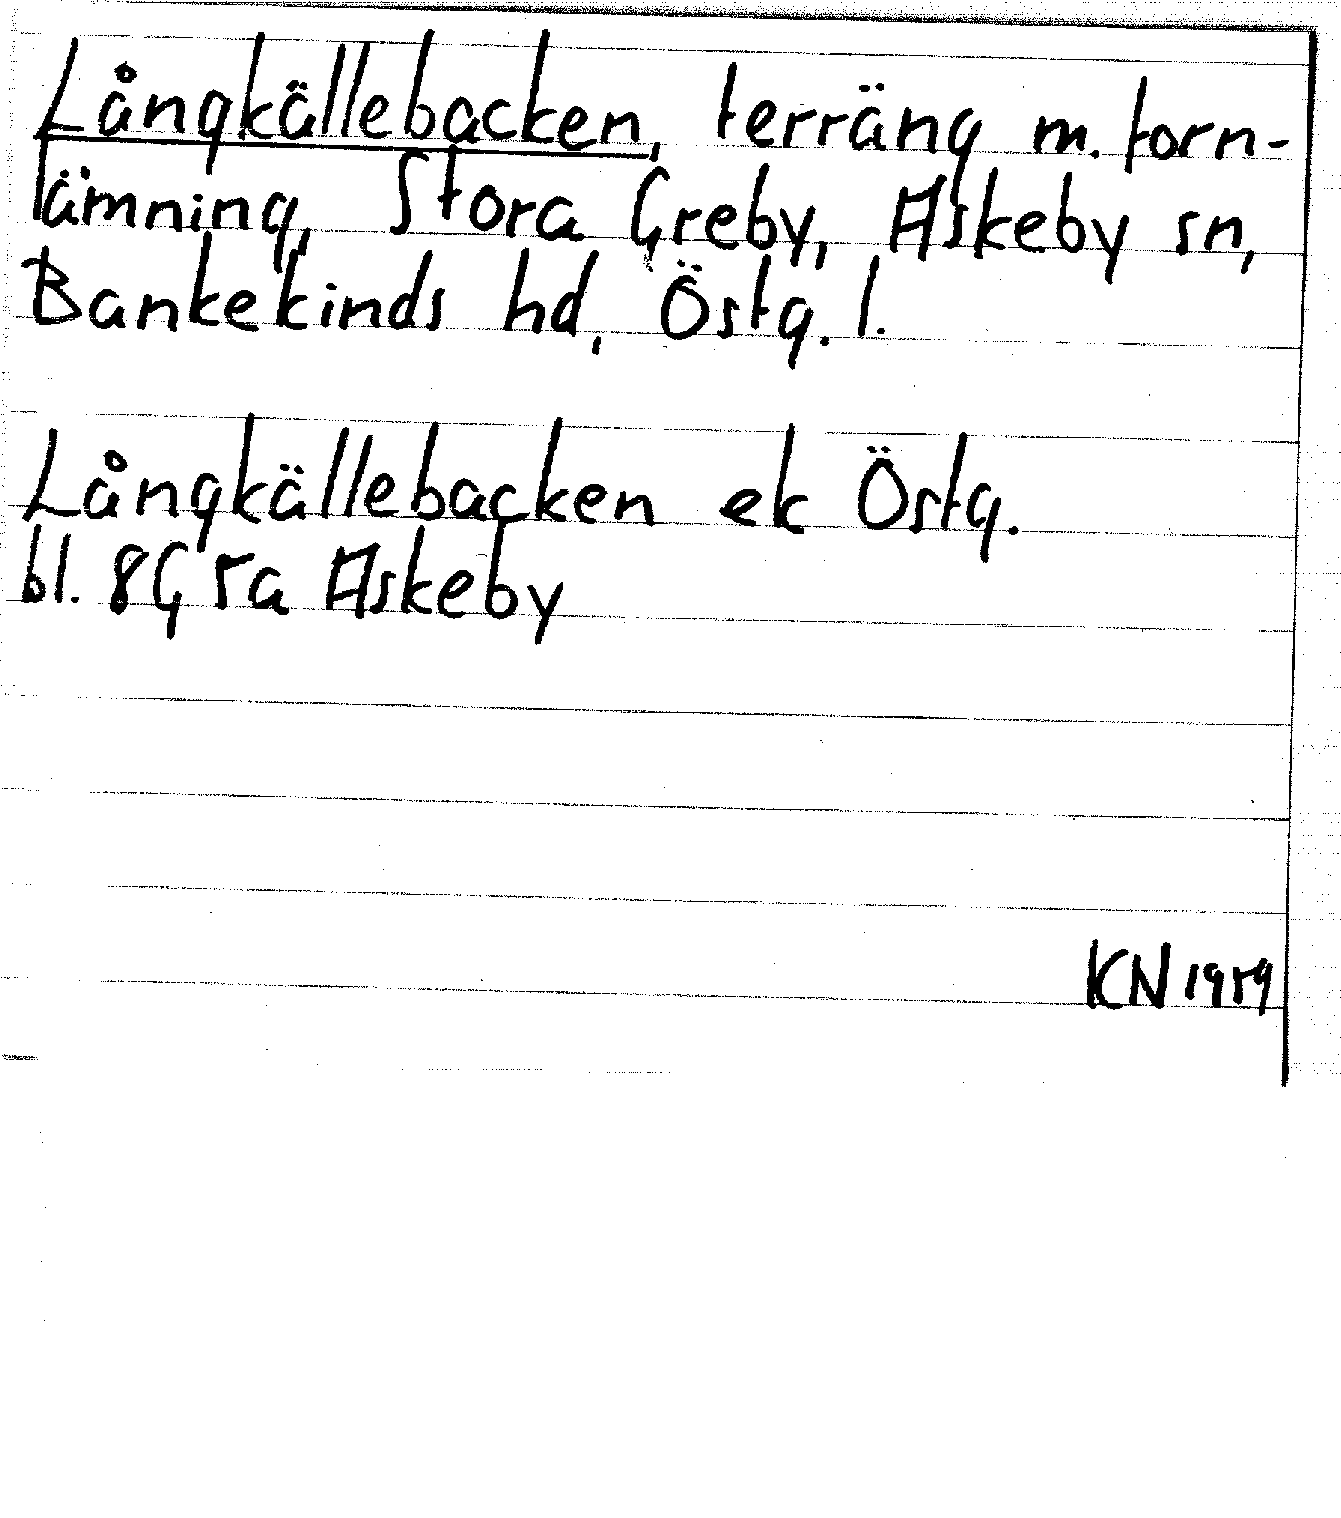 Långkällebacken, terräng m. forn-
lämning, Stora Greby, Askeby sn,
Bankekinds hd, Östg. l.
Långkällebacken ek Östg.
bl. 8G 5a Askeby
KN 1959